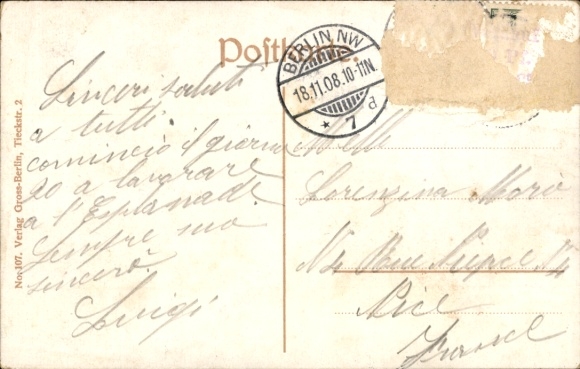 Postkarte.
BERLIN NW
18.11.08.10-11N.
* 7 d
Sinceri saluti
a tutti.
comincio il giorno
20 a lavorare
a l'Esplanade.
Sempre suo
sincero.
Luigi
Melle
Lorenzina Moro
N4 Rue
Nice
France
No. 107. Verlag Gross-Berlin, Tieckstr. 2